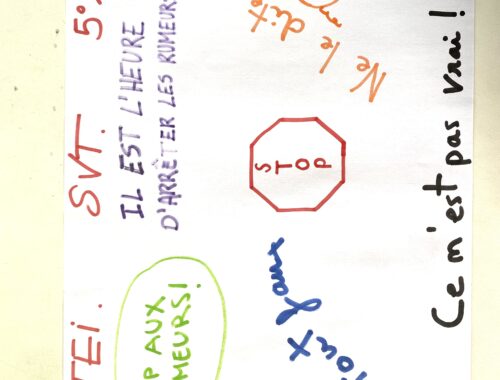 TEI. SVT. 5°
IL EST L'HEURE
D'ARRÊTER LES RUMEURS
P AUX
MEURS!
Ne le dite
STOP
out faux
Ce n'est pas vrai !